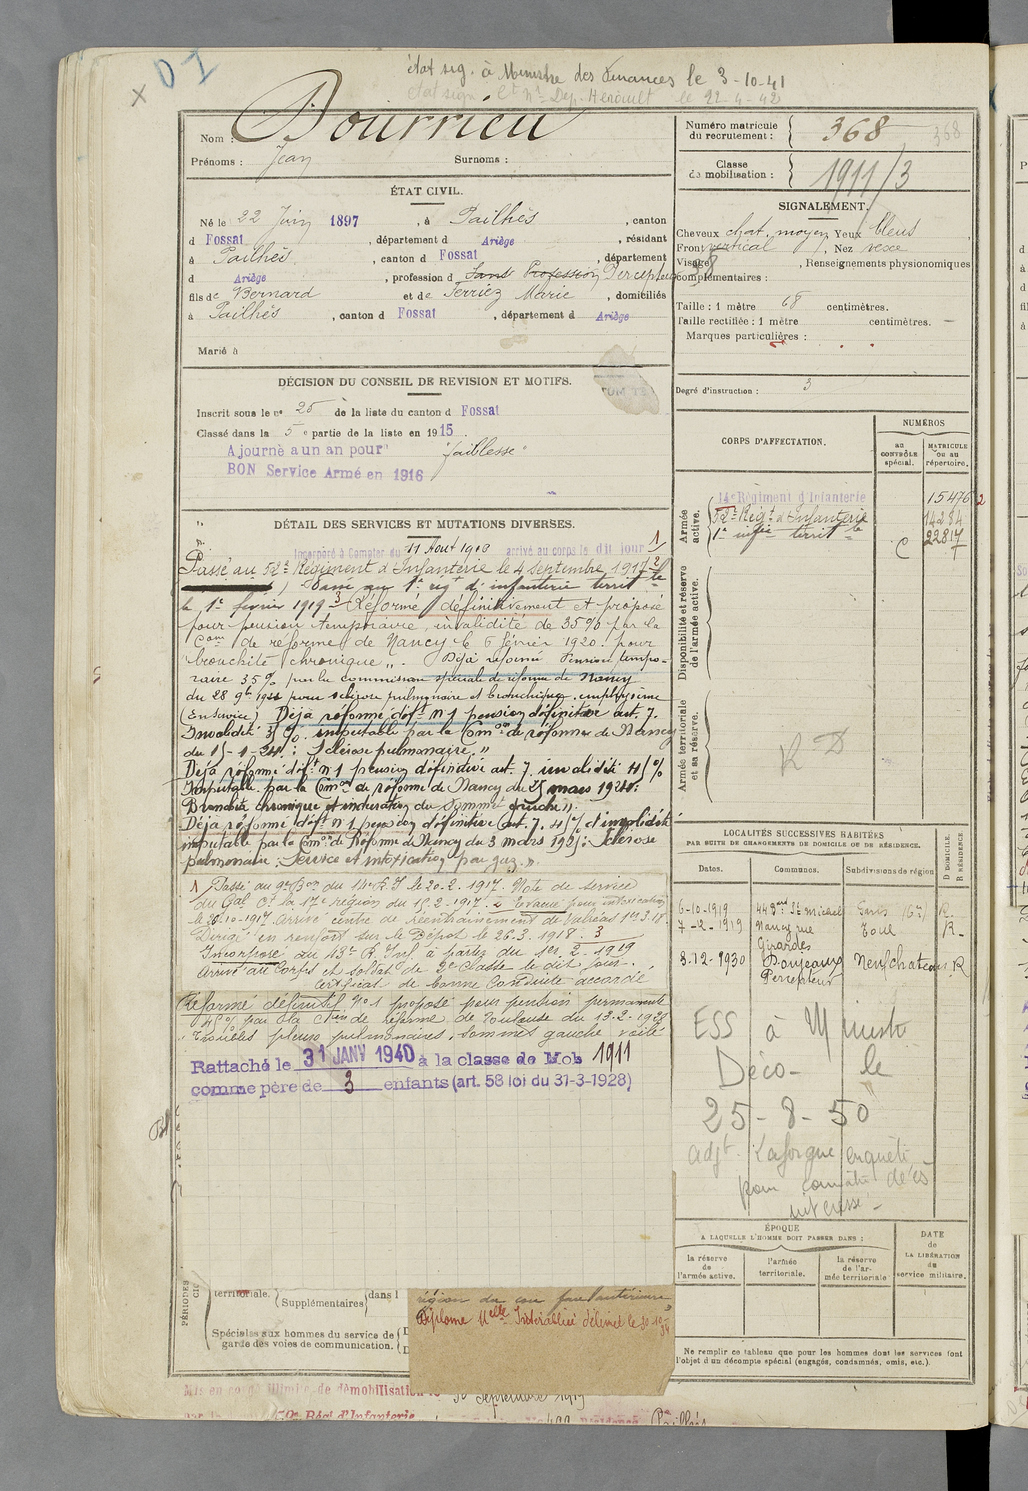 D I
état sig. à Ministre des Finances le 3-10-41
le 22-4-42
Nom : Bourrieu
Prénoms : Jean Surnoms :
ÉTAT CIVIL.
Né le 22 Juin 1897, à Pailhès, canton
d Fossat, département d Ariège, résidant
à Pailhès, canton d Fossat, département
d Ariège, profession d Sans Profession Percepteur
fils de Bernard et de Terriez Marie, domiciliés
à Pailhès, canton d Fossat, département d Ariège
Marié à
DÉCISION DU CONSEIL DE REVISION ET MOTIFS.
Inscrit sous le n° 25 de la liste du canton d Fossat
Classé dans la 5e partie de la liste en 1915.
Ajourné a un an pour "faiblesse"
BON Service Armé en 1916
DÉTAIL DES SERVICES ET MUTATIONS DIVERSES.
Incorporé à Compter du 11 Aout 1916 arrivé au corps le dit jour 1
Passé au 52e Régiment d'Infanterie le 4 Septembre 1917 2
Passé au 1er régt d'infanterie territle
le 1er février 1919 3 Réformé définitivement et proposé
pour pension temporaire, invalidité de 35% par la
Com de réforme de Nancy le 6 février 1920. pour
bronchite chronique ". Déjà réformé Pension tempo-
raire 35% par la commission spéciale de réforme de Nancy
du 28 9bre 1921 pour sclérose pulmonaire et bronchique, emphysème
(En Service) Déjà réformé déft n 1 pension définitive art. 7.
Invalidité 35%. imputable par la Comon de réforme de Nancy
du 15-1-24: Sclérose pulmonaire."
Déjà réformé déft n 1 pension définitive art. 7 invalidité 41%
Imputable par la Comon de réforme de Nancy du 25 mars 1924:
Bronchite chronique et induration du Sommet gauche".
Déjà réformé déft n 1 pension définitive (art. 7. 41% d'invalidité
imputable par la Comon de Réforme de Nancy du 3 mars 1925: Sclérose
pulmonaire: Service et intoxication par gaz.".
1 Passé au 9e Bon du 14e R.I le 20.2.1917. Note de service
du Gal Ct la 17e région du 15.2.1917. 2 Evacué pour intoxication
le 20.10.1917 arrivé centre de réentraînement de Valréas 1er 3.18
Dirigé en renfort sur le Dépôt le 26.3.1918. 3
Incorporé au 143e R. Inf. à partir du 1er.2.1919
Arrivé au Corps et soldat de 2e Classe le dit jour.
Certificat de bonne Conduite accordé
Réformé définitif N°1 proposé pour pension permanente
45% par la Ctn de réforme de Toulouse du 13.2.1928
"Troubles pleuro pulmonaires, sommet gauche voilé
Rattaché le 31 JANV 1940 à la classe de Mob 1911
comme père de 3 enfants (art. 58 loi du 31-3-1928)
PÉRIODES
territoriale. Supplémentaires dans l
Spéciales aux hommes du service de
garde des voies de communication.
région du cou face antérieure
Diplôme Melle Interalliée délivré le
Mis en congé illimité de démobilisation le Septembre 1919
Régt d'Infanterie
Pailhès
Numéro matricule
du recrutement : 368 368
Classe
de mobilisation : 1911/3
SIGNALEMENT.
Cheveux chat. moyen Yeux bleus
Front vertical, Nez vexe
Visage, Renseignements physionomiques
complémentaires :
Taille : 1 mètre 68 centimètres.
Taille rectifiée : 1 mètre centimètres.
Marques particulières :
Degré d'instruction : 3
CORPS D'AFFECTATION.
NUMÉROS
au CONTRÔLE spécial.
MATRICULE ou au répertoire.
Armée active.
14e Régiment d'Infanterie 15476 2
52e Régt d'Infanterie 14284
1er infie territle C 22817
Disponibilité et réserve de l'armée active.
Armée territoriale et sa réserve.
R D
LOCALITÉS SUCCESSIVES HABITÉES
PAR SUITE DE CHANGEMENTS DE DOMICILE OU DE RÉSIDENCE.
Dates. Communes. Subdivisions de région D DOMICILE. R RÉSIDENCE
6-10-1919 44 Bard St Michel Paris R.
7-2-1919 Nancy rue Girardet Toul R.
8.12.1930 Percepteur Neufchateau R
ESS à Minist
Déco- le
25-8-50
adjt Laforgue enquête
pour connaître
intéressé-
ÉPOQUE
A LAQUELLE L'HOMME DOIT PASSER DANS :
la réserve de l'armée active.
l'armée territoriale.
la réserve de l'armée territoriale
DATE de LA LIBÉRATION du service militaire.
Ne remplir ce tableau que pour les hommes dont les services font
l'objet d'un décompte spécial (engagés, condamnés, omis, etc.).